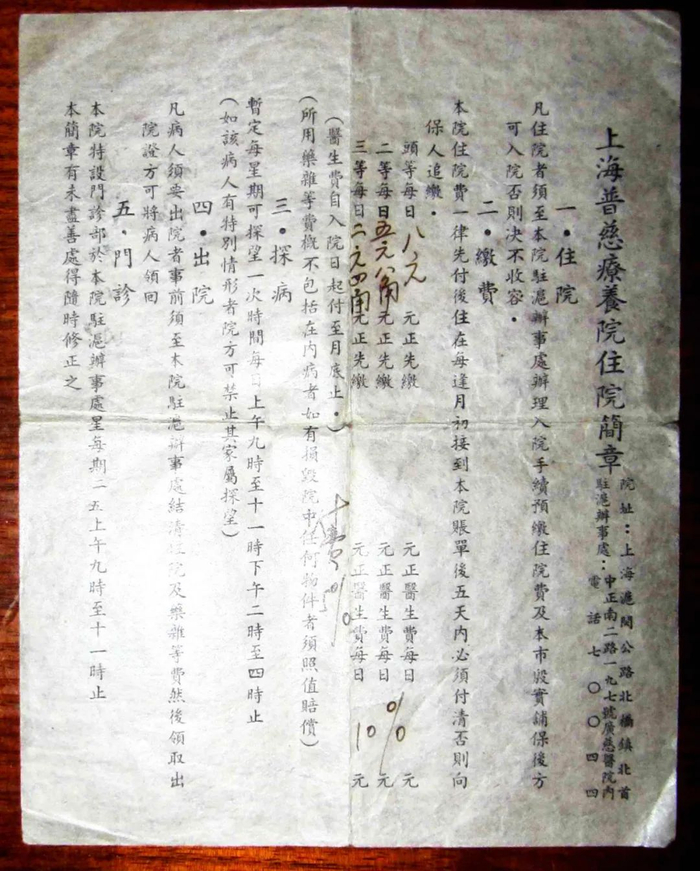 上海普慈療養院住院簡章
院址：上海滬閔公路北橋鎮北首
駐滬辦事處：中正南二路一九七號廣慈醫院內
電話七〇〇四四
一・住院
凡住院者須至本院駐滬辦事處辦理入院手續預繳住院費及本市殷實舖保後方
可入院否則決不收容・
二・繳費
本院住院費一律先付後住在每逢月初接到本院賬單後五天內必須付清否則向
保人追繳・
頭等每日八元元正先繳 元正醫生費每日 元
二等每日五元八角元正先繳 元正醫生費每日 % 元
三等每日二元四角元正先繳 元正醫生費每日 10 元
(醫生費自入院日起付至月底止・)
(所用藥雜等費概不包括在內病者如有損毀院中任何物件者須照值賠償)
三・探病
暫定每星期可探望一次時間每日上午九時至十一時下午二時至四時止
(如該病人有特別情形者院方可禁止其家屬探望)
四・出院
凡病人須要出院者事前須至本院駐滬辦事處結清住院及藥雜等費然後領取出
院證方可將病人領回
五・門診
本院特設門診部於本院駐滬辦事處星每期二五上午九時至十一時止
本簡章有未盡善處得隨時修正之